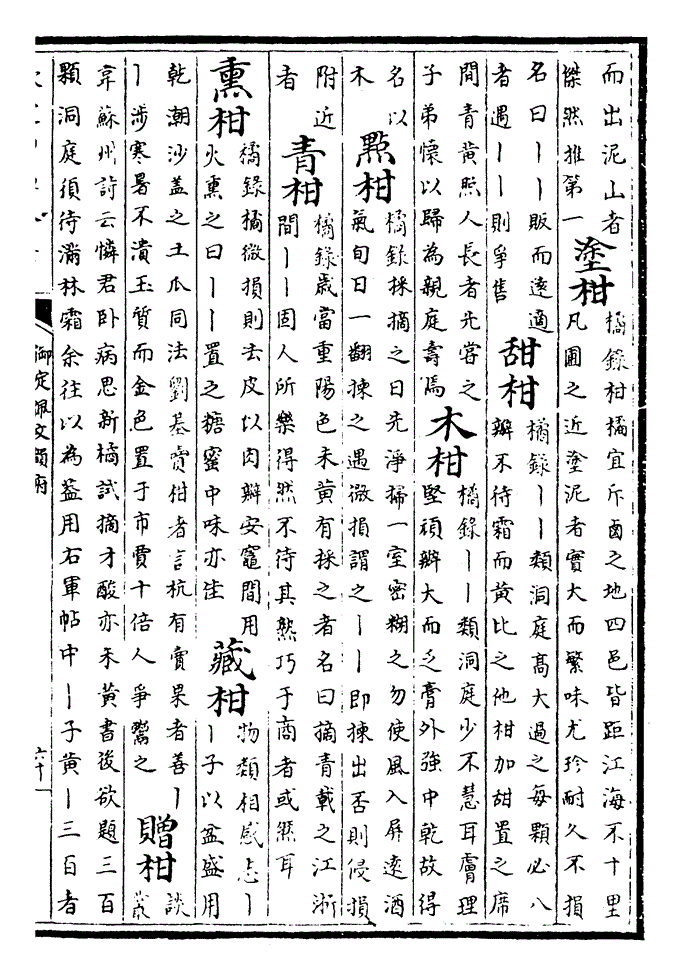 而出泥山者
傑然推第一
塗柑
橘錄柑橘宜斥鹵之地四邑皆距江海不十里
凡圃之近塗泥者實大而繁味尤珍耐久不損
名曰丨丨販而逺適
者遇丨丨則爭售
甜柑
橘錄丨丨類洞庭髙大過之每顆必八
瓣不待霜而黄比之他柑加甜置之席
間青黄照人長者先嘗之
子弟懷以歸為親庭壽焉
木柑
橘錄丨丨類洞庭少不慧耳膚理
堅頑瓣大而乏膏外強中乾故得
名以
木
㸃柑
橘錄採摘之日先淨掃一室密糊之勿使風入屏逺酒
氣旬日一翻揀之遇微損謂之丨丨即揀出否則侵損
附近
者
青柑
橘錄歳當重陽色未黄有採之者名曰摘青載之江浙
間丨丨固人所樂得然不待其熟巧于商者或然耳
熏柑
橘錄橘微損則去皮以肉瓣安竈間用
火熏之曰丨丨置之糖蜜中味亦佳
藏柑
物類相感志丨
丨子以盆盛用
乾潮沙盖之土瓜同法劉基賣柑者言杭有賣果者善丨
丨涉寒暑不潰玉質而金色置于市賈十倍人爭鬻之
贈柑
談
叢
韋蘇州詩云憐君卧病思新橘試摘才酸亦未黄書後欲題三百
顆洞庭須待滿林霜余往以為葢用右軍帖中丨子黄丨三百者
御定佩文韻府